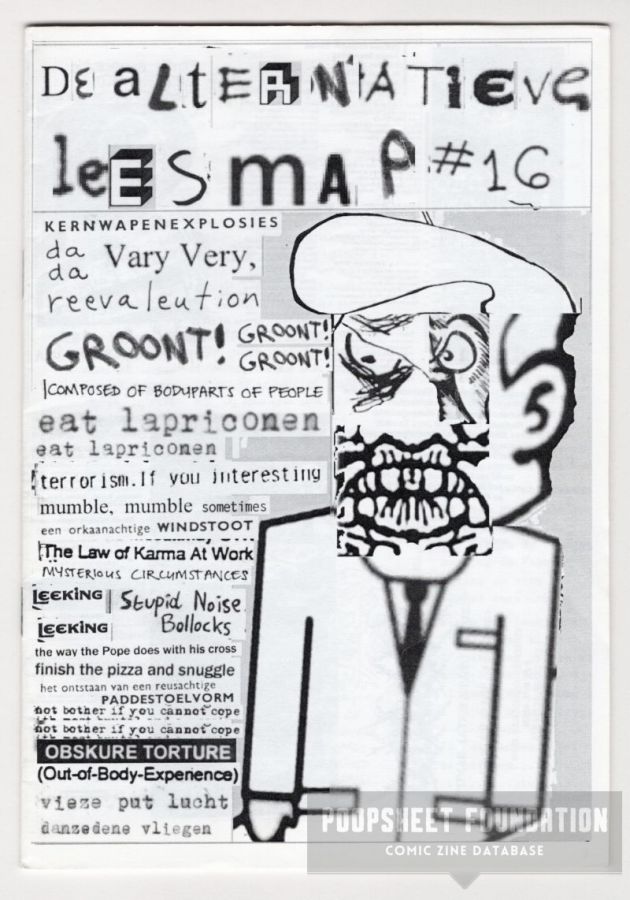 De alternatieve
leesmap #16
KERNWAPENEXPLOSIES
da Vary Very,
da
reevaleution
GROONT! GROONT!
GROONT!
COMPOSED OF BODYPARTS OF PEOPLE
eat lapriconen
eat lapriconen
terrorism.If you interesting
mumble, mumble sometimes
een orkaanachtige WINDSTOOT
The Law of Karma At Work
MYSTERIOUS CIRCUMSTANCES
LEEKING Stupid Noise
LEEKING Bollocks
the way the Pope does with his cross
finish the pizza and snuggle
het ontstaan van een reusachtige
PADDESTOELVORM
not bother if you cannot cope
not bother if you cannot cope
OBSKURE TORTURE
(Out-of-Body-Experience)
vieze put lucht
danzedene vliegen
POOPSHEET FOUNDATION
COMIC ZINE DATABASE